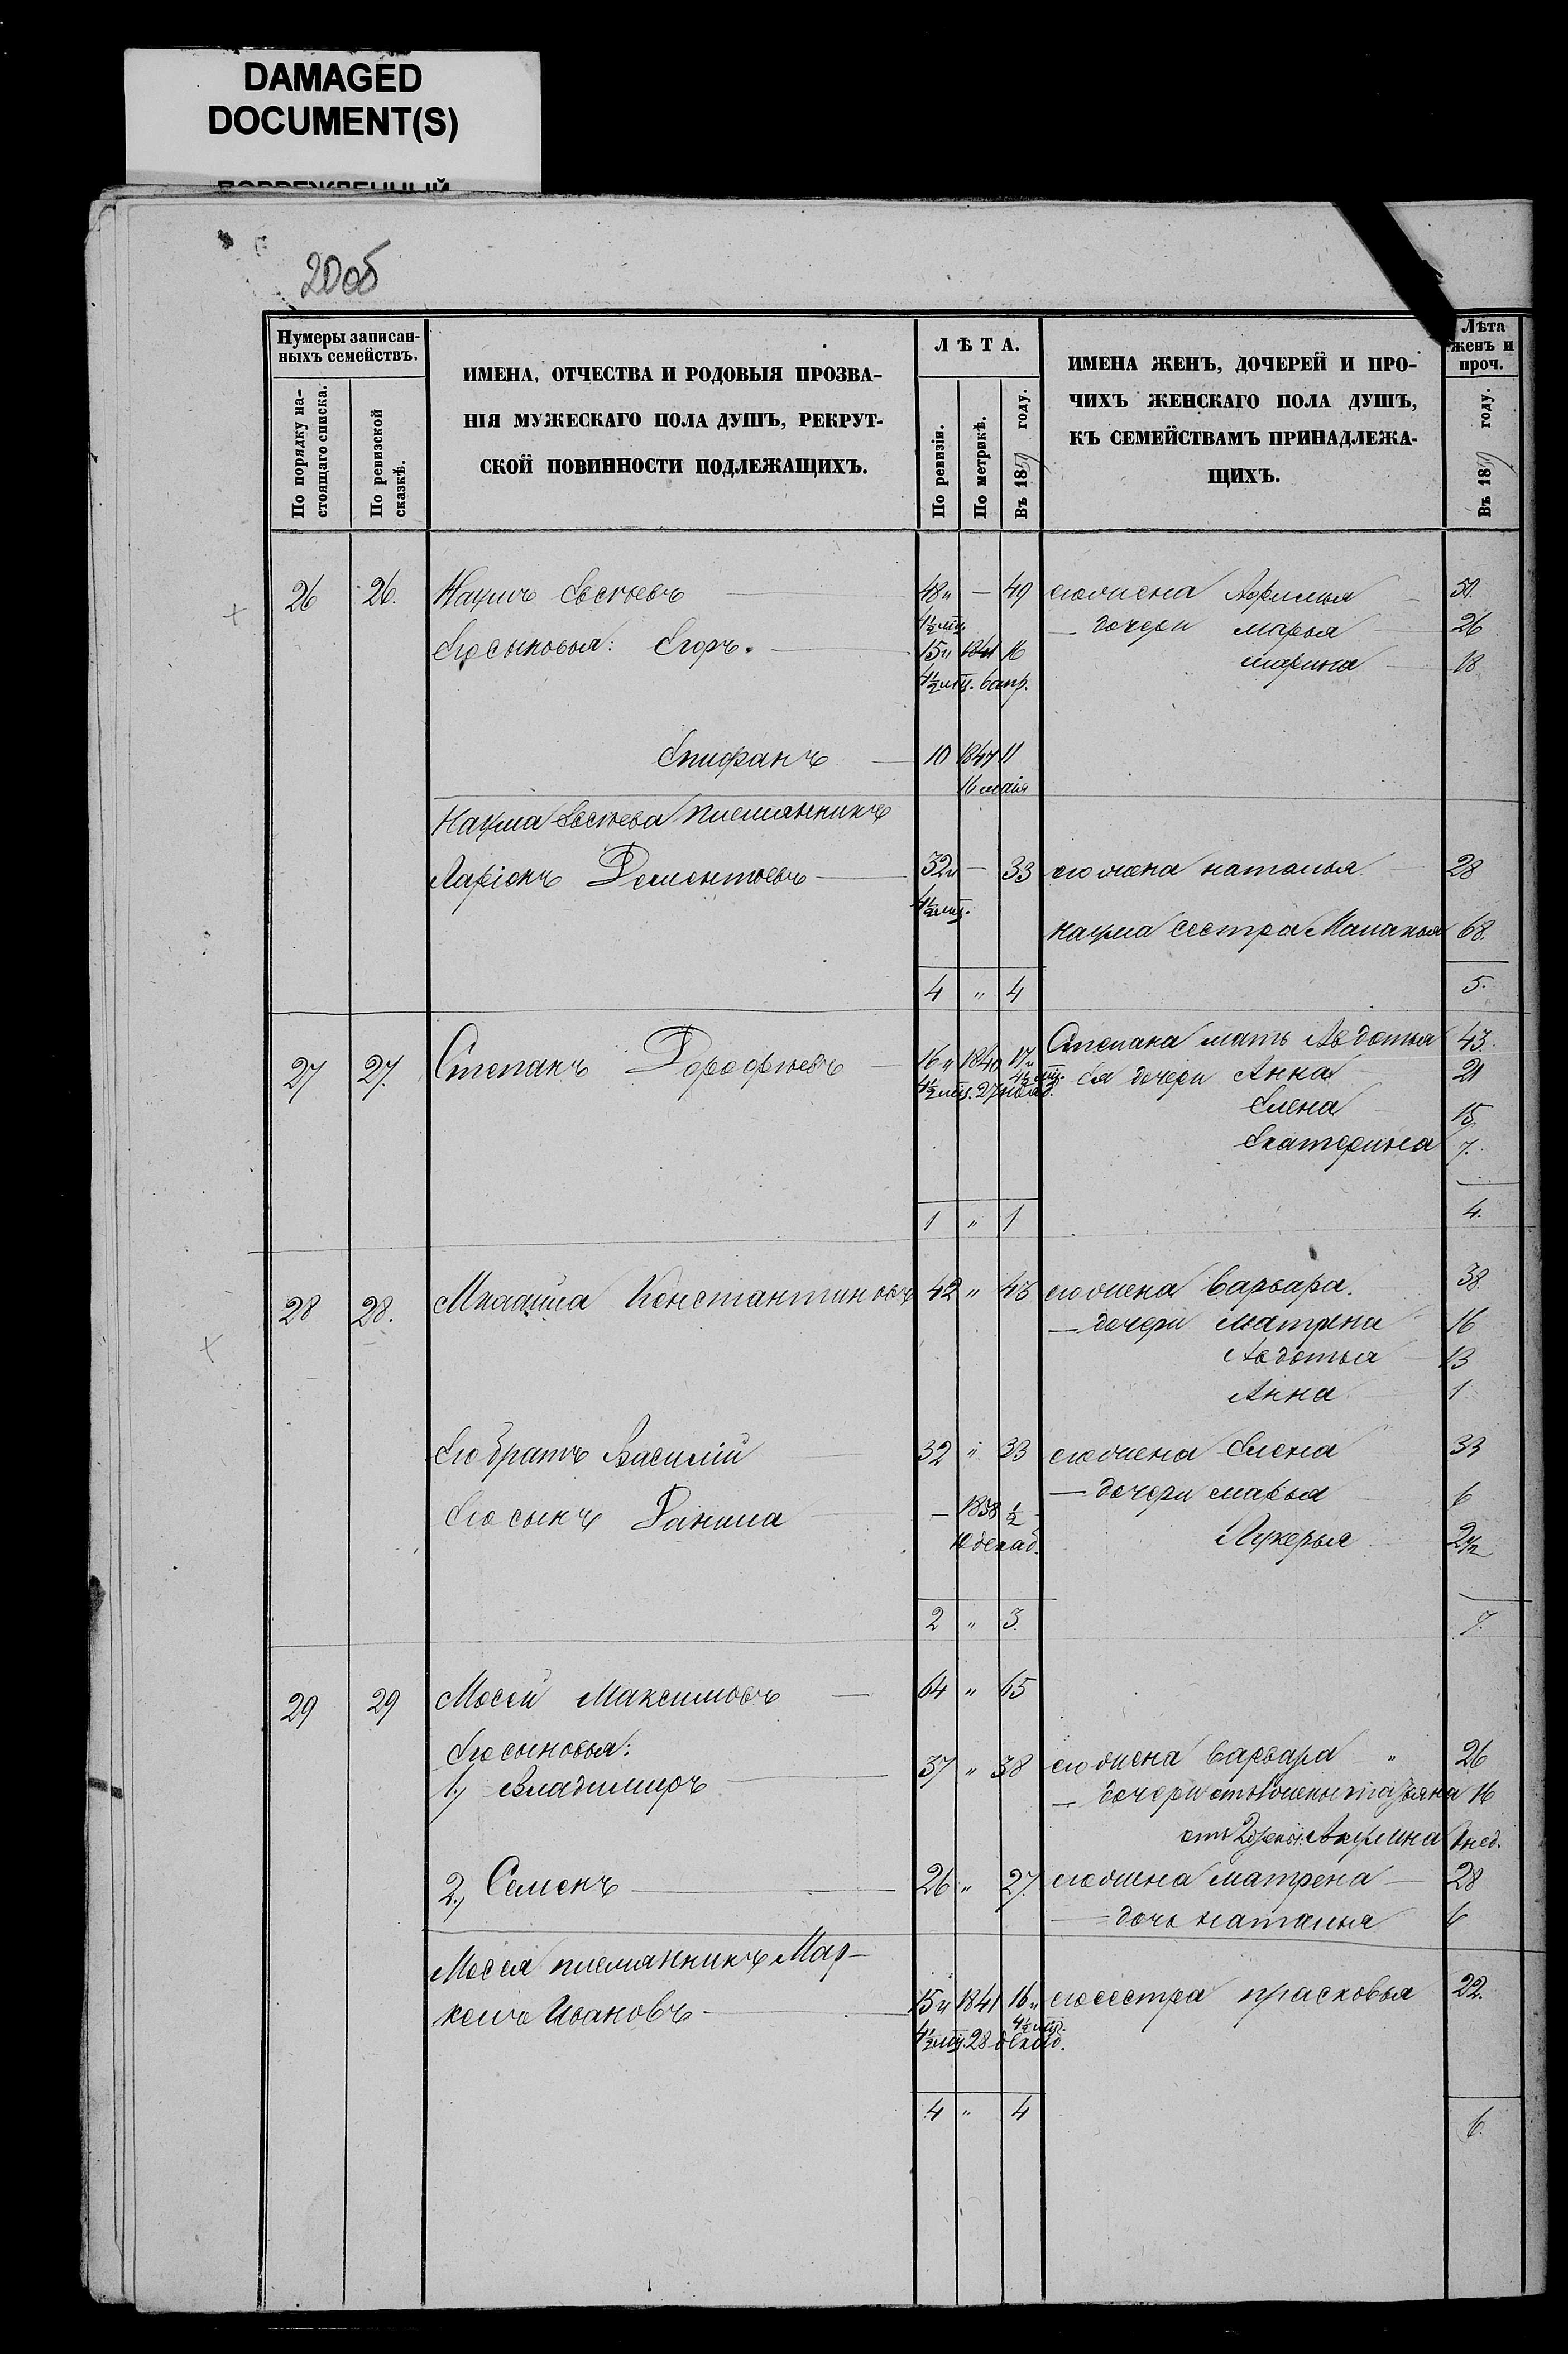 DAMAGED
DOCUMENT(S)
20об
Нумеры записан-
ныхъ семействъ.
По порядку на-
стоящаго списка.
По ревизской
сказкѣ.
ИМЕНА, ОТЧЕСТВА И РОДОВЫЯ ПРОЗВА-
НІЯ МУЖЕСКАГО ПОЛА ДУШЪ, РЕКРУТ-
СКОЙ ПОВИННОСТИ ПОДЛЕЖАЩИХЪ.
ЛѢТА.
По ревизіи.
По метрикѣ.
Въ 1859 году.
ИМЕНА ЖЕНЪ, ДОЧЕРЕЙ И ПРО-
ЧИХЪ ЖЕНСКАГО ПОЛА ДУШЪ,
КЪ СЕМЕЙСТВАМЪ ПРИНАДЛЕЖА-
ЩИХЪ.
Лѣта
женъ и
проч.
Въ 1859 году.
26 26. Наумъ Евсѣевъ — 48 „ — 49 его жена Афимья — 50.
4½ мц. — дочери марья — 26
Его сыновья: Егоръ. — 15 „ 1841 16 марина — 18
4½ мц. 6 апр.
Епифанъ — 10 1847 11
16 маія
Наума Евсѣева племянникъ
Ларіонъ Дементьевъ — 32 „ — 33 его жена наталья — 28
4½ мц.
наума сестра Маланья 68.
4 „ 4 5.
27 27. Степанъ Дорофѣевъ — 16 „ 1840 17 „ Степана мать Авдотья 43.
4½ мц. 27 нояб. 4½ мц. Ея дочери Анна — 21
Елена 15.
Екатерина 7.
1 „ 1 4.
28 28. Константиновъ 42 „ 43 его жена Варвара. 38.
— дочери матрена 16
Авдотья — 13
Анна — 1
Его братъ Василій — 32 „ 33 его жена Елена 33
— дочери марья 6
Его сынъ Данила — — 1858 ½
10 декаб. Лукерья 2½
2 „ 3. 7.
29 29 Мосей Максимовъ — 64 „ 65
Его сыновья:
1., Владимиръ — 37 „ 38 его жена Варвара „ 26
— дочери от 1 жены татьяна 16
от 2й жены: Акулина 1 нед.
2., Семенъ — 26 „ 27. его жена матрена — 28
— дочь наталья 6
Мосея племянникъ Мар-
келъ Ивановъ — 15 „ 1841 16 „ его сестра прасковья 22.
4½ мц. 28 декаб. 4½ мц.
4 „ 4 6.